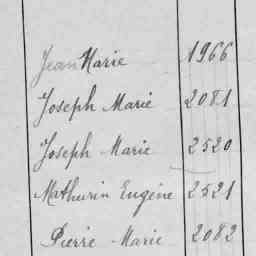 Jean Marie 1966
Joseph Marie 2081
Joseph Marie 2520
Mathurin Eugène 2521
Pierre Marie 2082